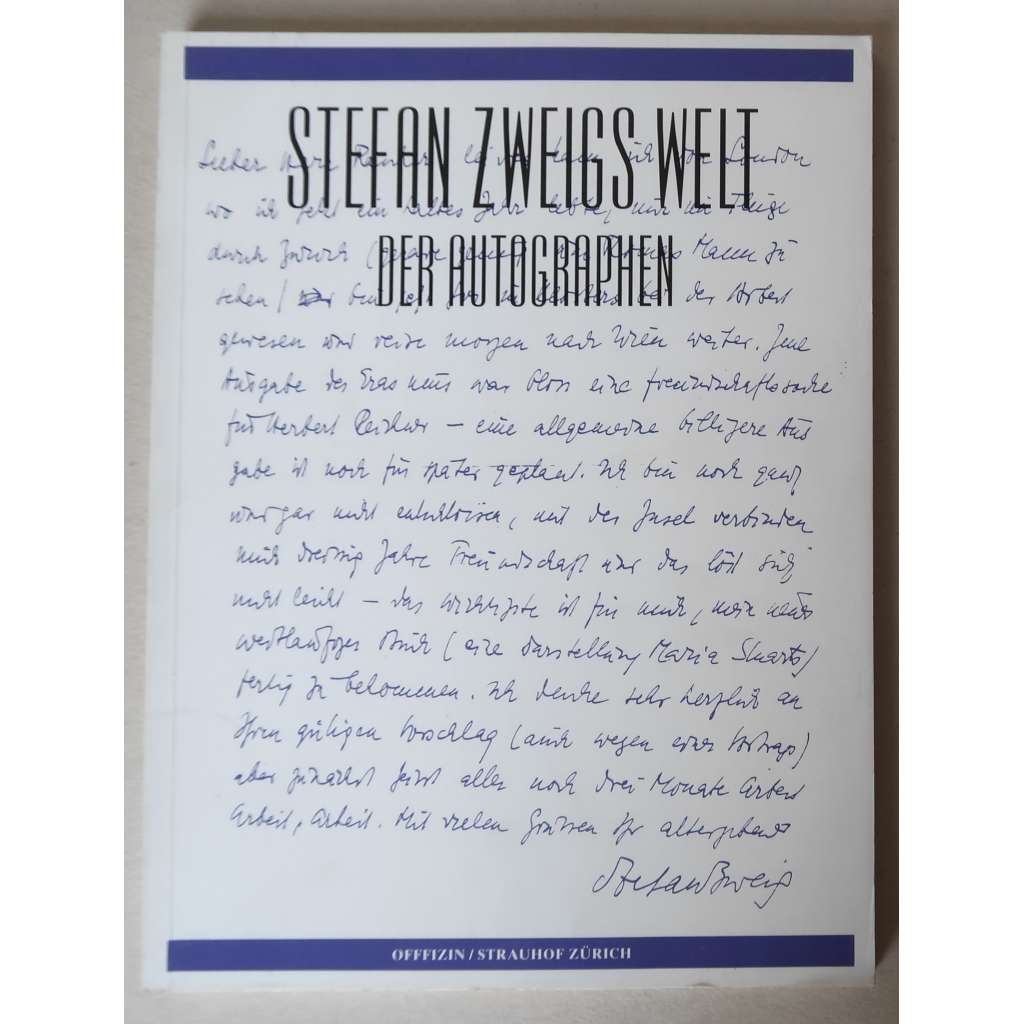 STEFAN ZWEIGS WELT
DER AUTOGRAPHEN
Lieber Herr ich von London
wo ich jetzt ein halbes Jahr lebte, nur im Fluge
durch Zürich (gerade genug um Thomas Mann zu
sehen) bin ich hier in Klosters bei der Arbeit
gewesen und reise morgen nach Wien weiter. Jene
Ausgabe des Erasmus war bloss eine Freundschaftssache
für Herbert Reichner – eine allgemeine billigere Aus
gabe ist noch für später geplant. Ich bin noch ganz
und gar nicht entschlossen, mit der Insel verbinden
mich dreissig Jahre Freundschaft und das löst sich
nicht leicht – das wichtigste ist für mich, mein neues
weitläufiges Buch (eine Darstellung Maria Stuarts)
fertig zu bekommen. Ich denke sehr herzlich an
Ihren gütigen Vorschlag (auch wegen eines Vortrags)
aber zunächst heisst alles noch drei Monate Arbeit
Arbeit, Arbeit. Mit vielen Grüssen Ihr altergebener
Stefan Zweig
OFFFIZIN / STRAUHOF ZÜRICH